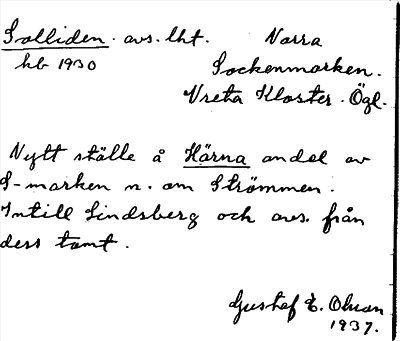 Solliden. avs. lht. Norra
kb 1930 Sockenmarken.
Vreta Kloster. Ögl.
Nytt ställe å Härna andel av
S-marken n. om Strömmen.
Intill Lindsberg och avs. från
dess tomt.
Gustaf E. Olson
1937.